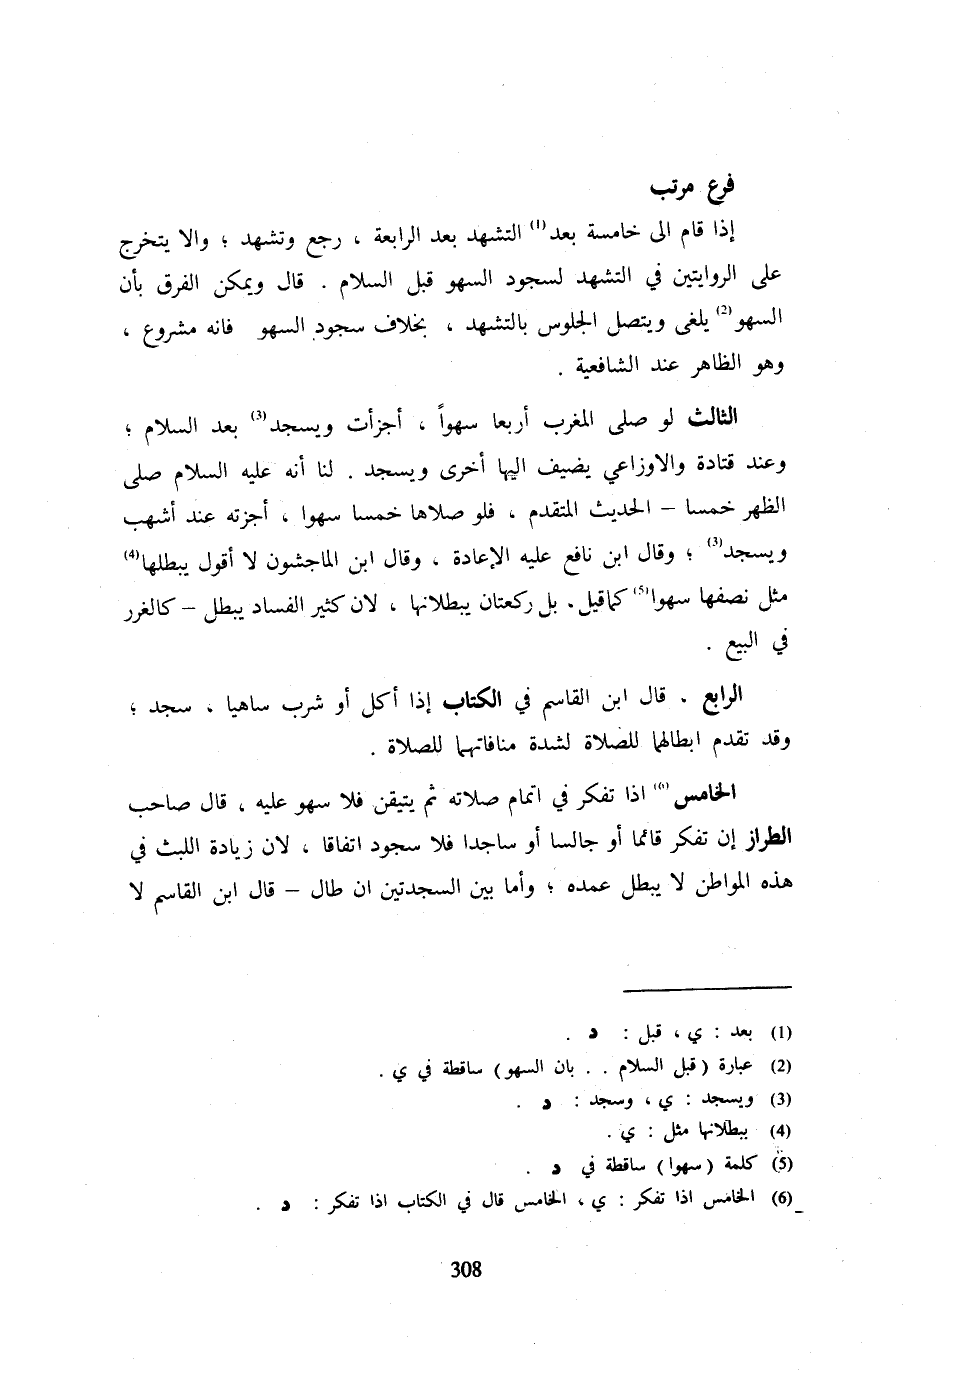 فرع مرتب
إذا قام الى خامسة بعد(1) التشهد بعد الرابعة ، رجع وتشهد ؛ والا يتخرج
على الروايتين في التشهد لسجود السهو قبل السلام . قال ويمكن الفرق بأن
السهو(2) يلغى ويتصل الجلوس بالتشهد ، بخلاف سجود السهو فانه مشروع ،
وهو الظاهر عند الشافعية .
الثالث لو صلى المغرب أربعا سهواً ، أجزأت ويسجد(3) بعد السلام ؛
وعند قتادة والاوزاعي يضيف اليها أخرى ويسجد . لنا أنه عليه السلام صلى
الظهر خمسا – الحديث المتقدم ، فلو صلاها خمسا سهوا ، أجزته عند أشهب
ويسجد(3) ؛ وقال ابن نافع عليه الإعادة ، وقال ابن الماجشون لا أقول يبطلها(4)
مثل نصفها سهوا(5) كماقيل . بل ركعتان يبطلانها ، لان كثير الفساد يبطل – كالغرر
في البيع .
الرابع . قال ابن القاسم في الكتاب إذا أكل أو شرب ساهيا ، سجد ؛
وقد تقدم ابطالها للصلاة لشدة منافاتهما للصلاة .
الخامس(6) اذا تفكر في اتمام صلاته ثم يتيقن فلا سهو عليه ، قال صاحب
الطراز إن تفكر قائما أو جالسا أو ساجدا فلا سجود اتفاقا ، لان زيادة اللبث في
هذه المواطن لا يبطل عمده ؛ وأما بين السجدتين ان طال – قال ابن القاسم لا
(1) بعد : ي ، قبل : د .
(2) عبارة (قبل السلام . . بان السهو) ساقطة في ي .
(3) ويسجد : ي ، وسجد : د .
(4) ببطلانها مثل : ي .
(5) كلمة (سهوا) ساقطة في د .
(6) الخامس اذا تفكر : ي ، الخامس قال في الكتاب اذا تفكر : د .
308